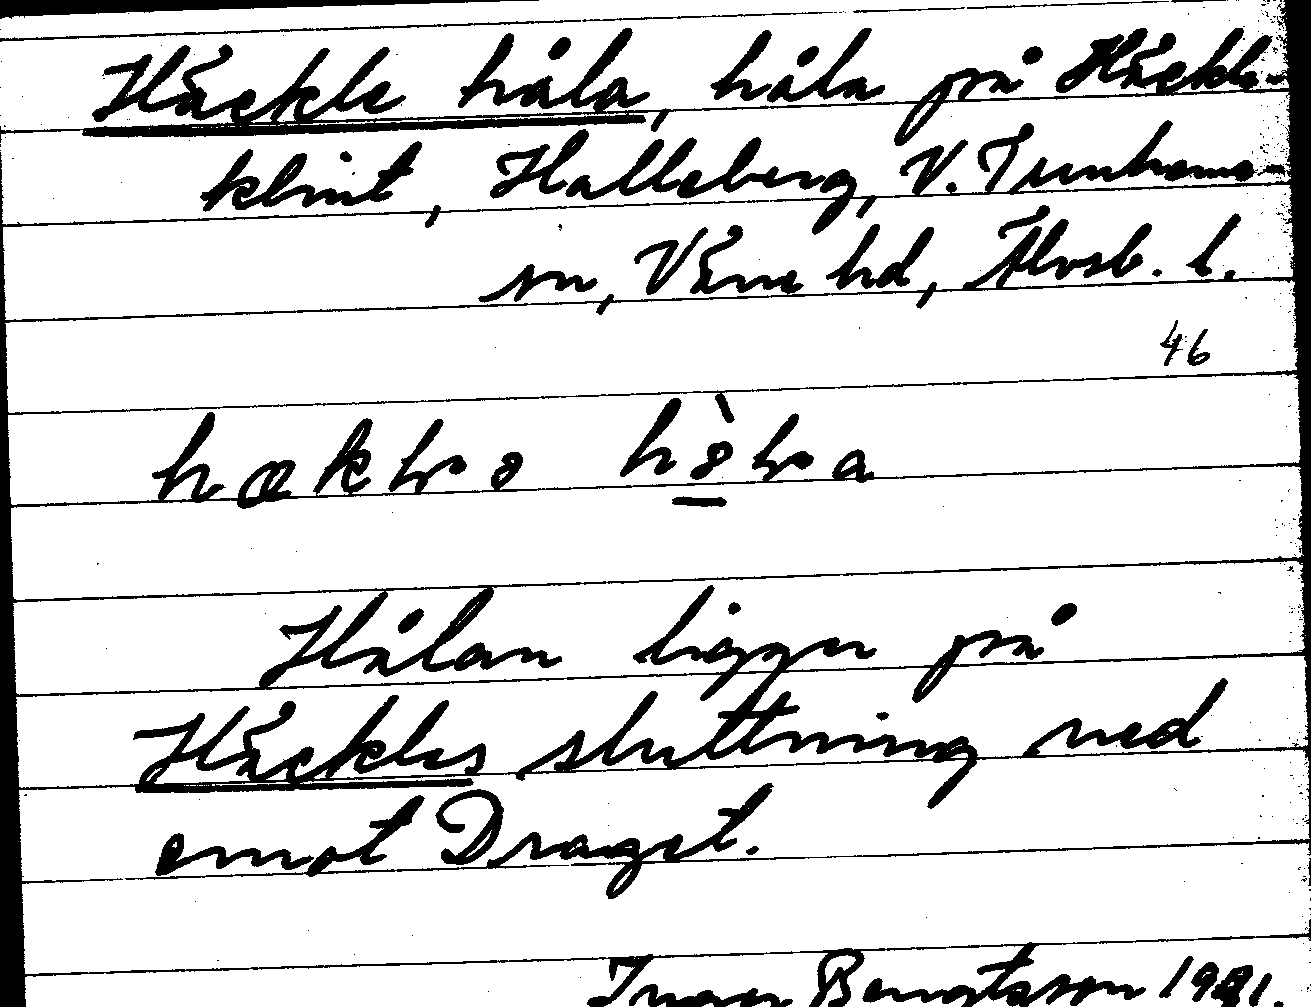 Häckle håla, håla på Häckle-
klint, Halleberg, V. Tunhems-
sn, Väne hd, Älvsb. l.
46
Hålan ligger på
Häckles sluttning ned
emot Draget.
Inger Bengtsson 1981.